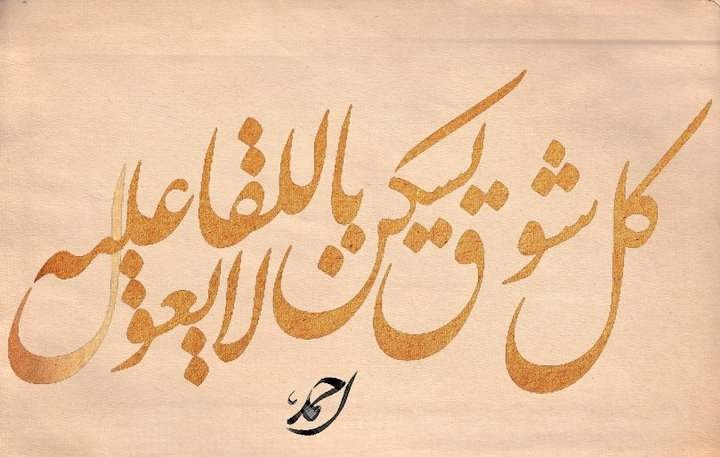 كل شوق يسكن باللقا لا يعول عليه
احمد